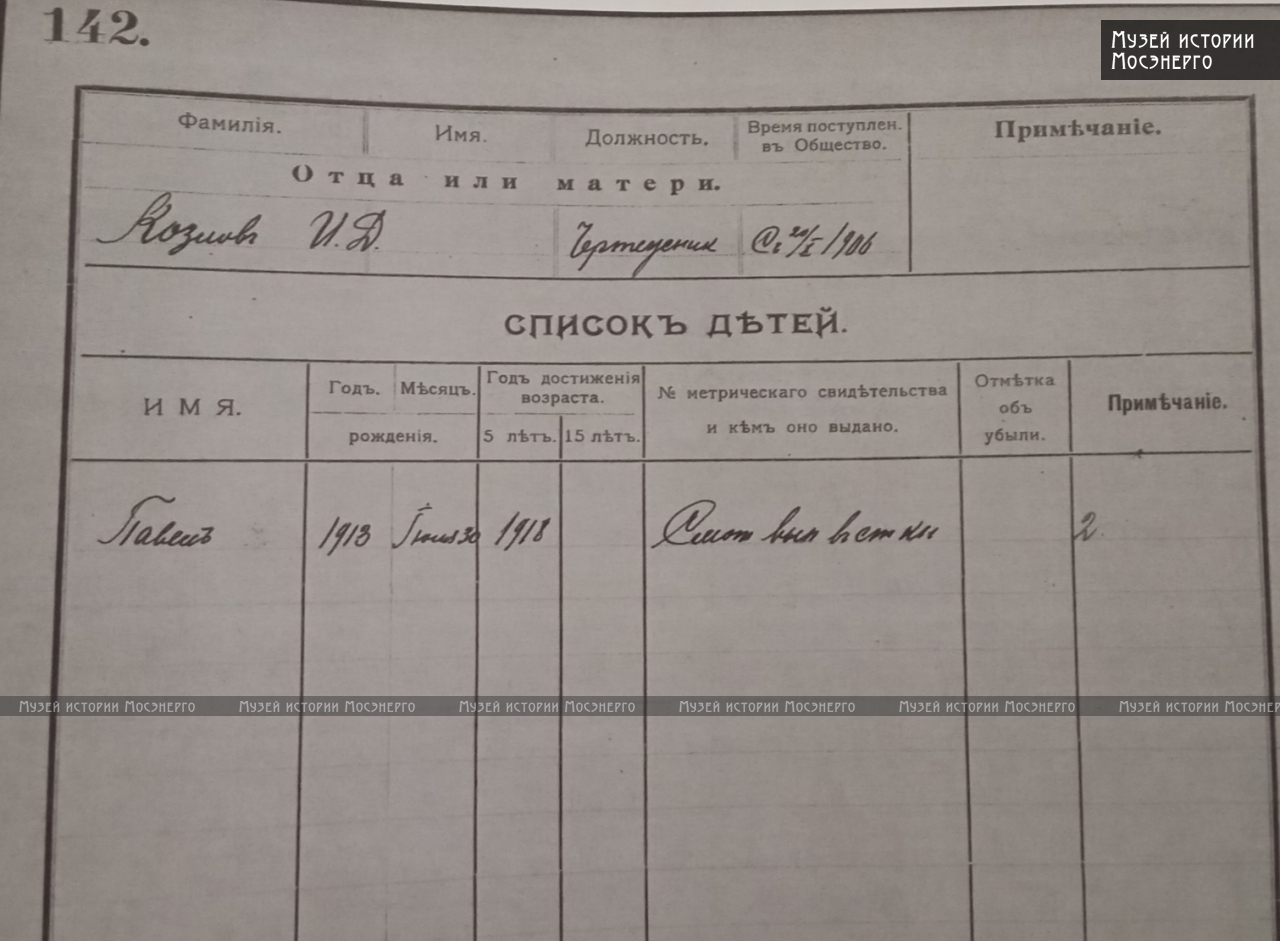 142.
Музей истории
Мосэнерго
Фамилія. Имя. Должность. Время поступлен. въ Общество. Примѣчаніе.
Отца или матери.
Козловъ И. Д. Чертежник С 20/I 1906
СПИСОКЪ ДѢТЕЙ.
ИМЯ. Годъ. Мѣсяцъ. рожденія. Годъ достиженія возраста. 5 лѣтъ. 15 лѣтъ. № метрическаго свидѣтельства и кѣмъ оно выдано. Отмѣтка объ убыли. Примѣчаніе.
Павелъ 1913 30 1918 Смот 2
Музей истории Мосэнерго Музей истории Мосэнерго Музей истории Мосэнерго Музей истории Мосэнерго Музей истории Мосэнерго Музей истории Мосэнер